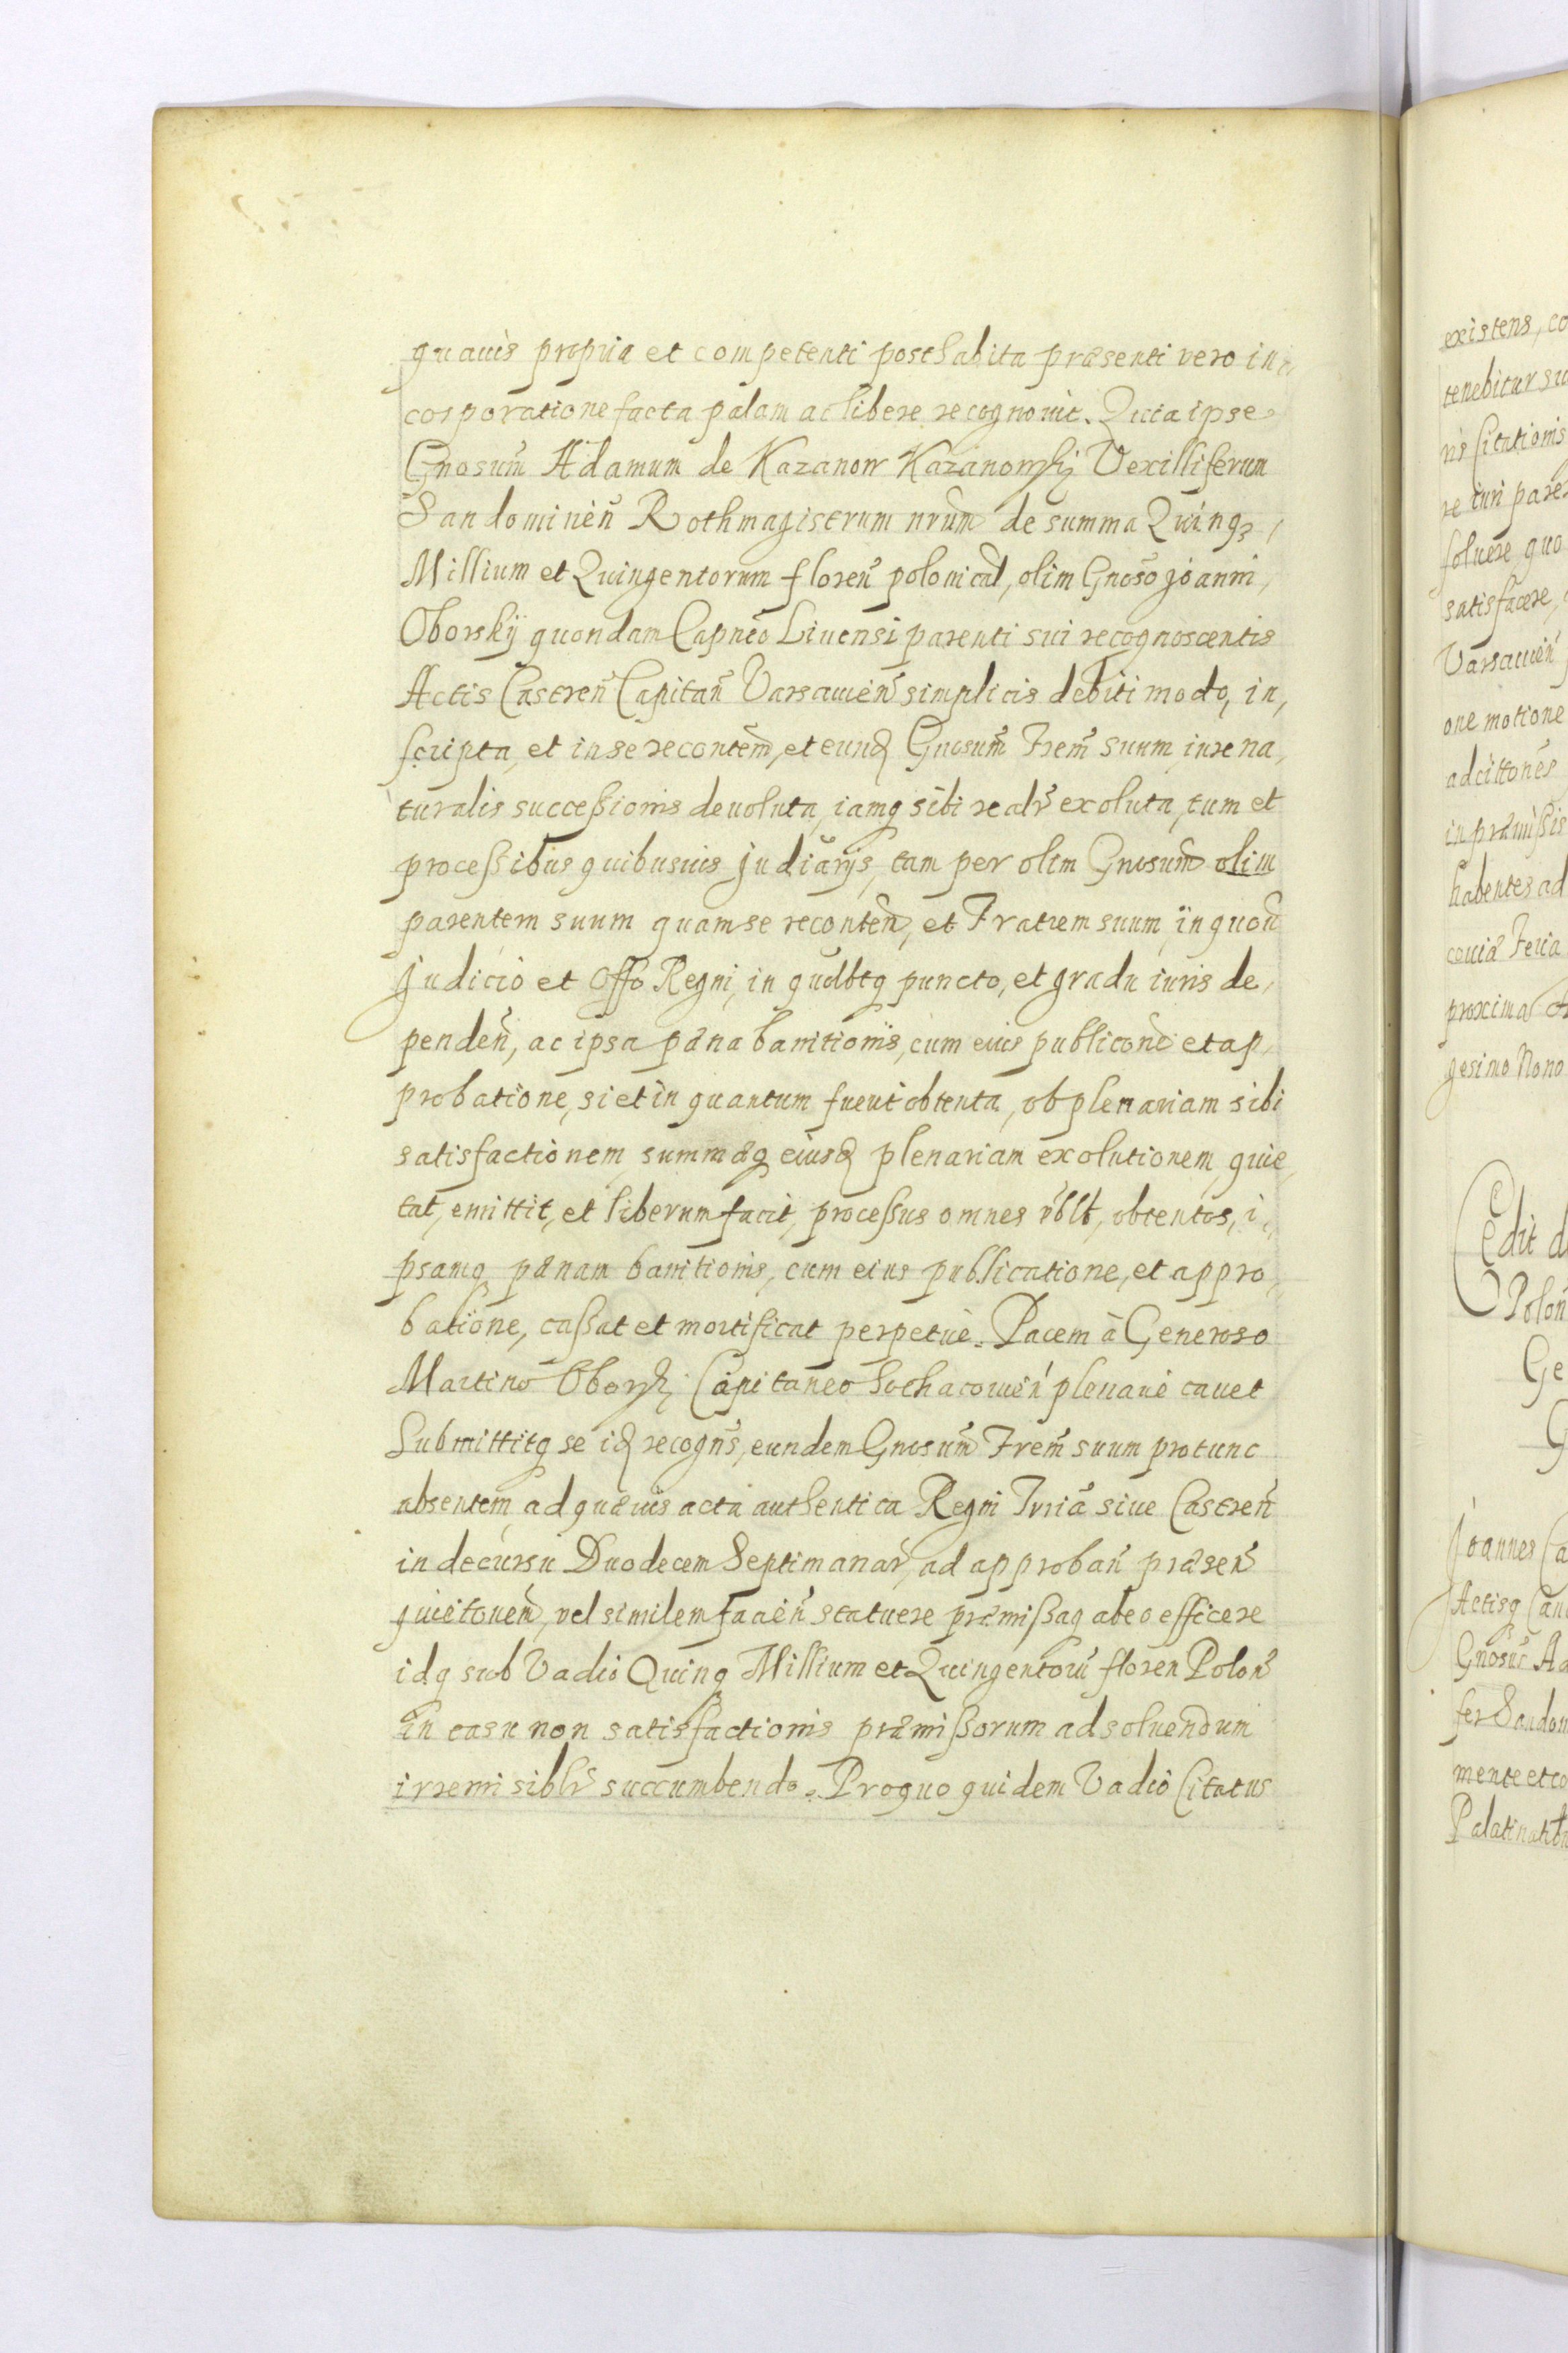 quauis propria et competenti posthabita præsenti vero in
corporatione facta palam ac libere recognouit. Quia ipse
Gnosum̃ Adamum de Kazanow Kazanowskj Vexilliferum
Sandominen̄ Rothmagistrum nrum̃ de summa Quinq3
Millium et Quingentorum floren̄ polonical, olim Gnoso Joanni
Oborskij quondam Capneo Liuensi parenti sui recognoscentis
Actis Castren̄ Capitan̄ Varsauien̄ simplicis debiti modo, in,
scripta, et in se reconten̄, et eund Gnosum̃ Frem̃ suum iure na,
turalis successionis deuoluta, iamq sibi realr exoluta, tum et
processibus quibusuis Judiarijs, tam per olim Gnosum̃ olim
parentem suum quam se reconten̄, et Fratrem suum in quou
Judicio et Offo Regni, in quolbtq puncto, et gradu iuris de,
penden̄, ac ipsa pæna banitionis, cum eius publicone et ap,
probatione, si et in quantum fuerit obtenta, ob plenariam sibi
satisfactionem summæq eiusd plenariam exolutionem, quie,
tat, emittit, et liberum facit, processus omnes vblt, obtentos, i,
psamq pænam banitionis, cum eius publicatione, et appro,
batione, cassat et mortificat perpetuè. Pacem à Generoso
Martino Oborskj Capitaneo Sochacouien̄ plenariè cauet
Submittitq se id recogns, eundem Gnosum̃ Frem̃ suum pro tunc
absentem ad quæuis acta authentica Regni Trria siue Castren̄
in decursu Duodecem Septimanar, ad approban̄ præsen̄
quietouem, vel similem facien̄ statuere præmissaq ab eo efficere
idq sub Vadio Quinq Millium et Quingentoru floren Polon̄
in casu non satisfactionis præmissorum ad soluendum
irremisiblr succumbendo. Pro quo quidem Vadio Citatus
existens, co
tenebitur su
ris Citationis
re iuri pare
soluere, quo
satisfacere,
Varsauien̄
one motione
ad cittones
in præmissis
habentes ad
ceuia Feria
proxima
gesimo Nono
Cedit d
Polon̄
Ge
G
Joannes Ca
Actisq Can
Gnosus Ad
fer Sandom
mente et co
Palatinatib